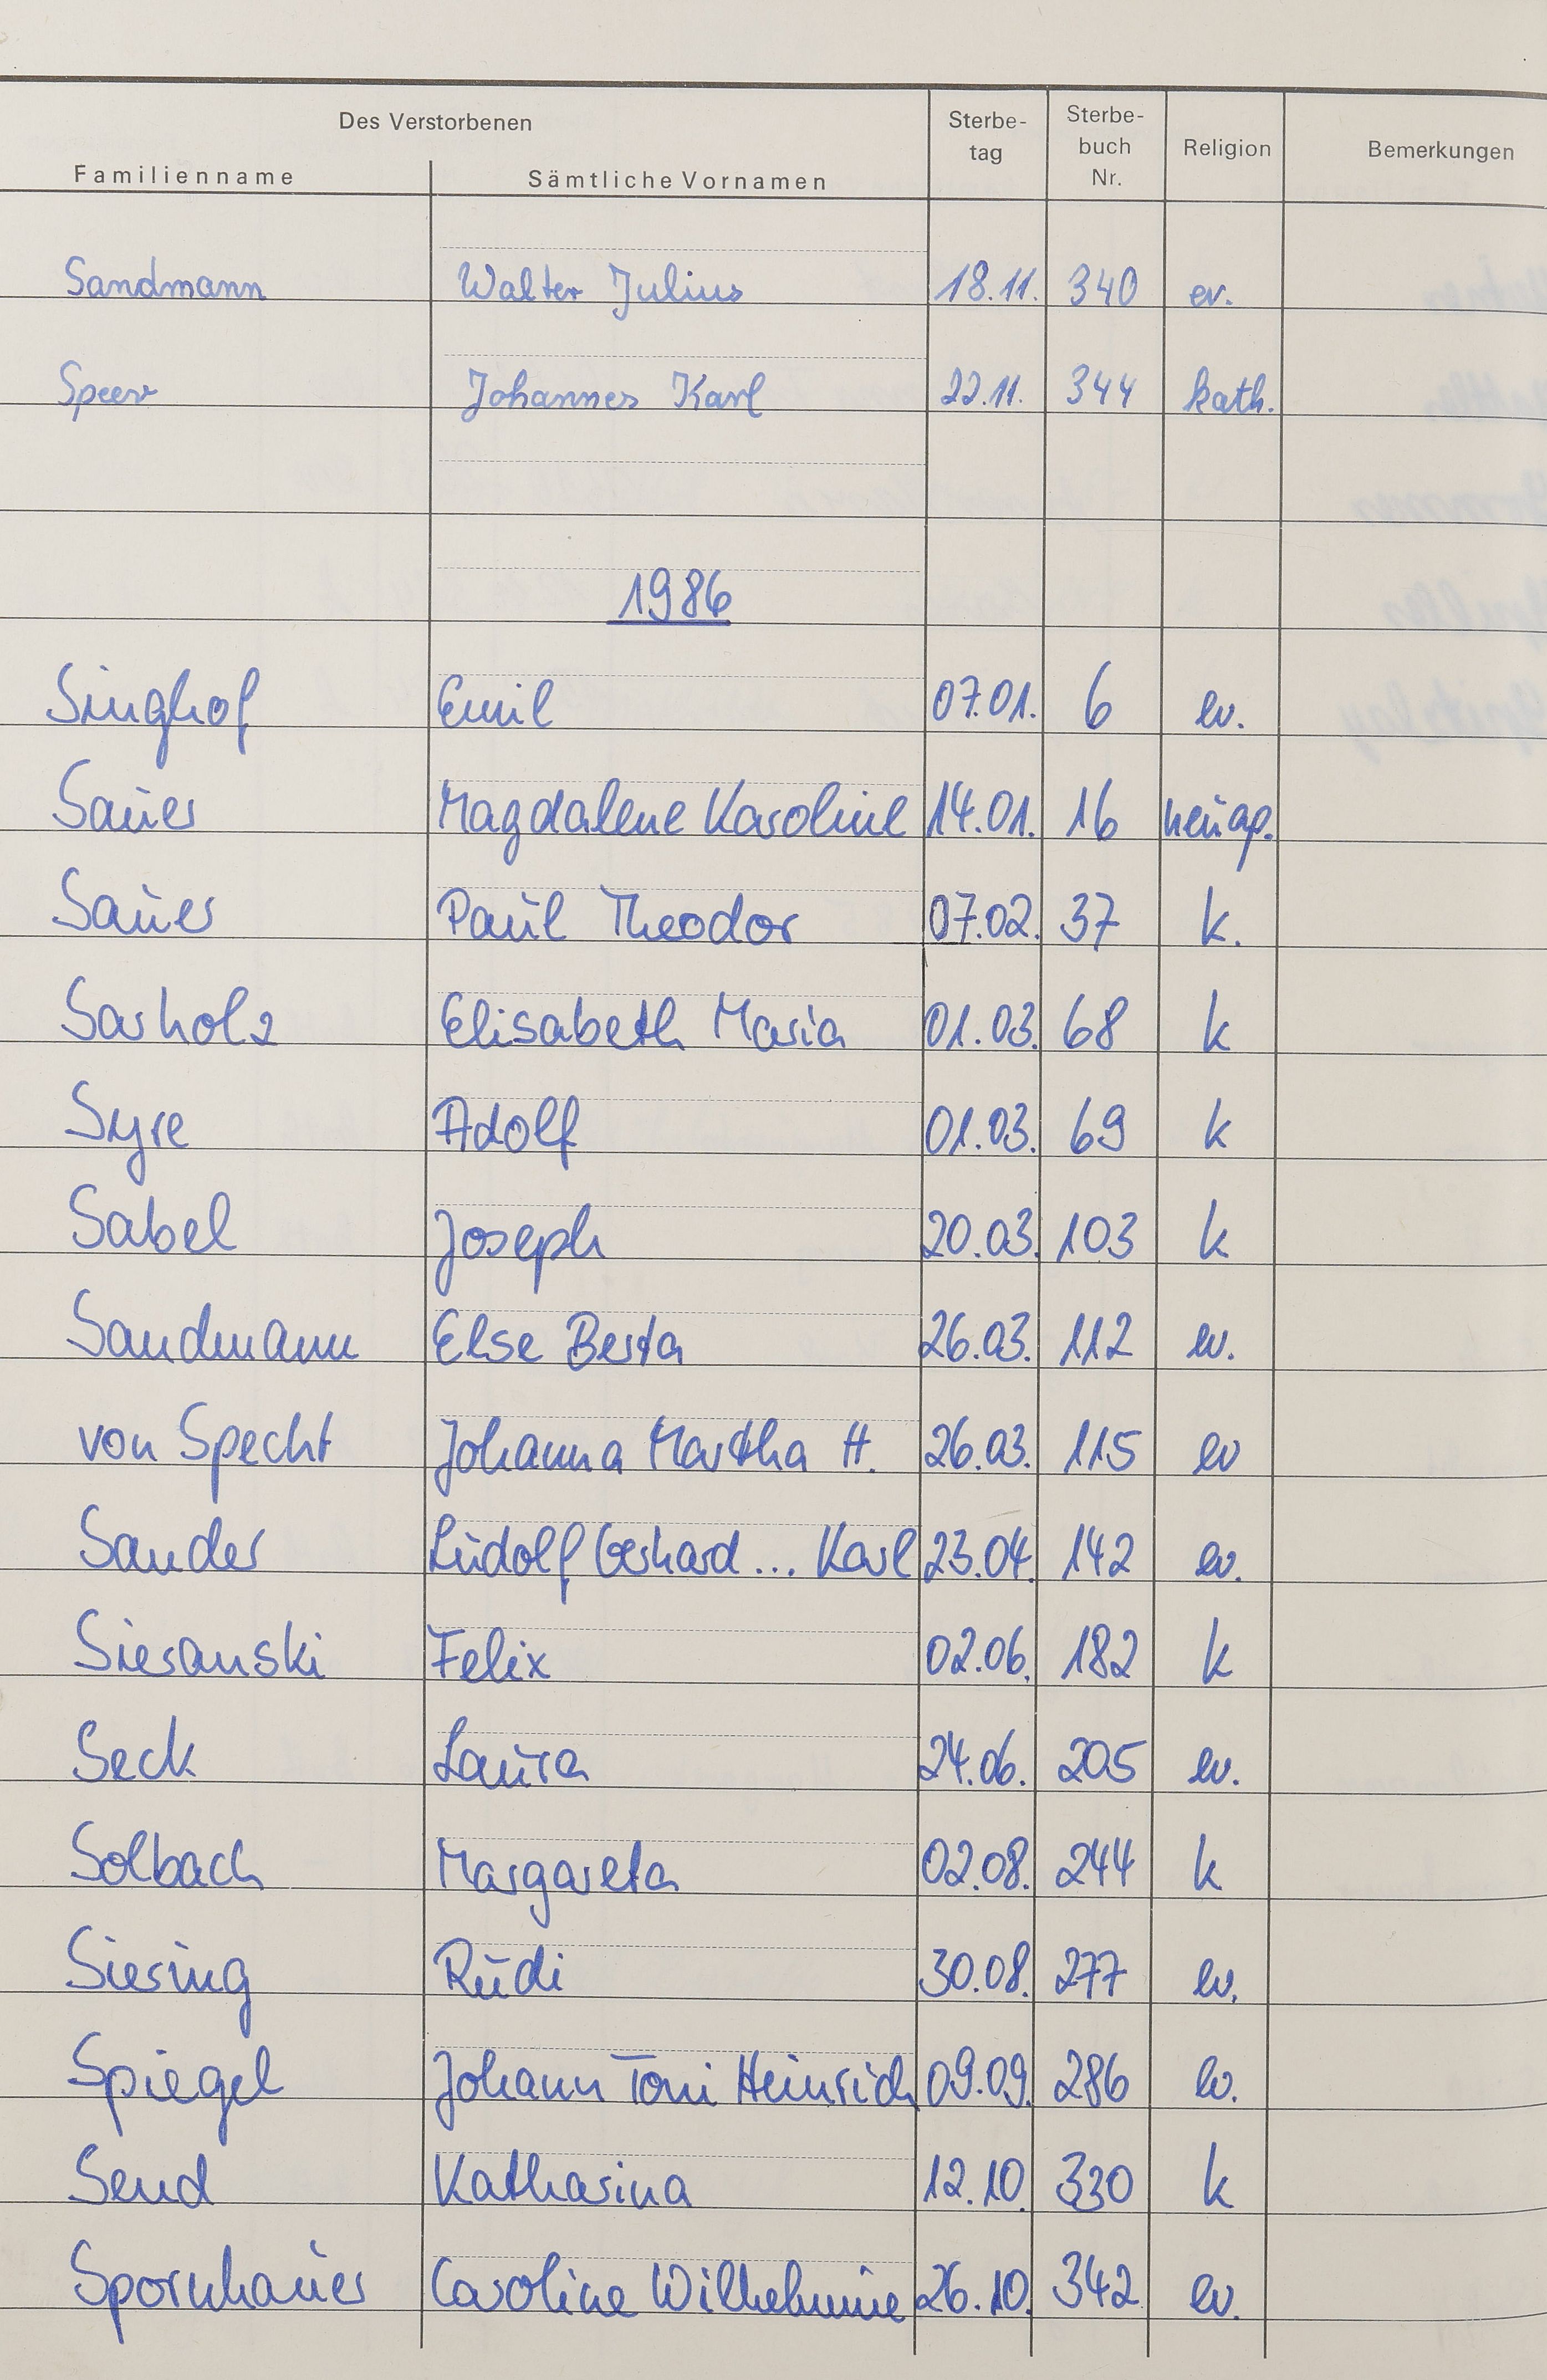 Des Verstorbenen
Familienname Sämtliche Vornamen Sterbe-tag Sterbe-buch Nr. Religion Bemerkungen
Sandmann Walter Julius 18.11. 340 ev.
Speer Johannes Karl 22.11. 344 kath.
1986
Singhof Emil 07.01. 6 ev.
Sauer Magdalene Karoline 14.01. 16 neuap.
Sauer Paul Theodor 07.02. 37 k.
Sarholz Elisabeth Maria 01.03. 68 k
Syre Adolf 01.03. 69 k
Sabel Joseph 20.03. 103 k
Sandmann Else Berta 26.03. 112 ev.
von Specht Johanna Martha H. 26.03. 115 ev
Sander Ludolf Gerhard... Karl 23.04. 142 ev.
Sieranski Felix 02.06. 182 k
Seck Laura 24.06. 205 ev.
Solbach Margareta 02.08. 244 k
Siering Rudi 30.08. 277 ev.
Spiegel Johann Toni Heinrich 09.09. 286 ev.
Send Katharina 12.10. 330 k
Spornhauer Caroline Wilhelmine 26.10. 342 ev.